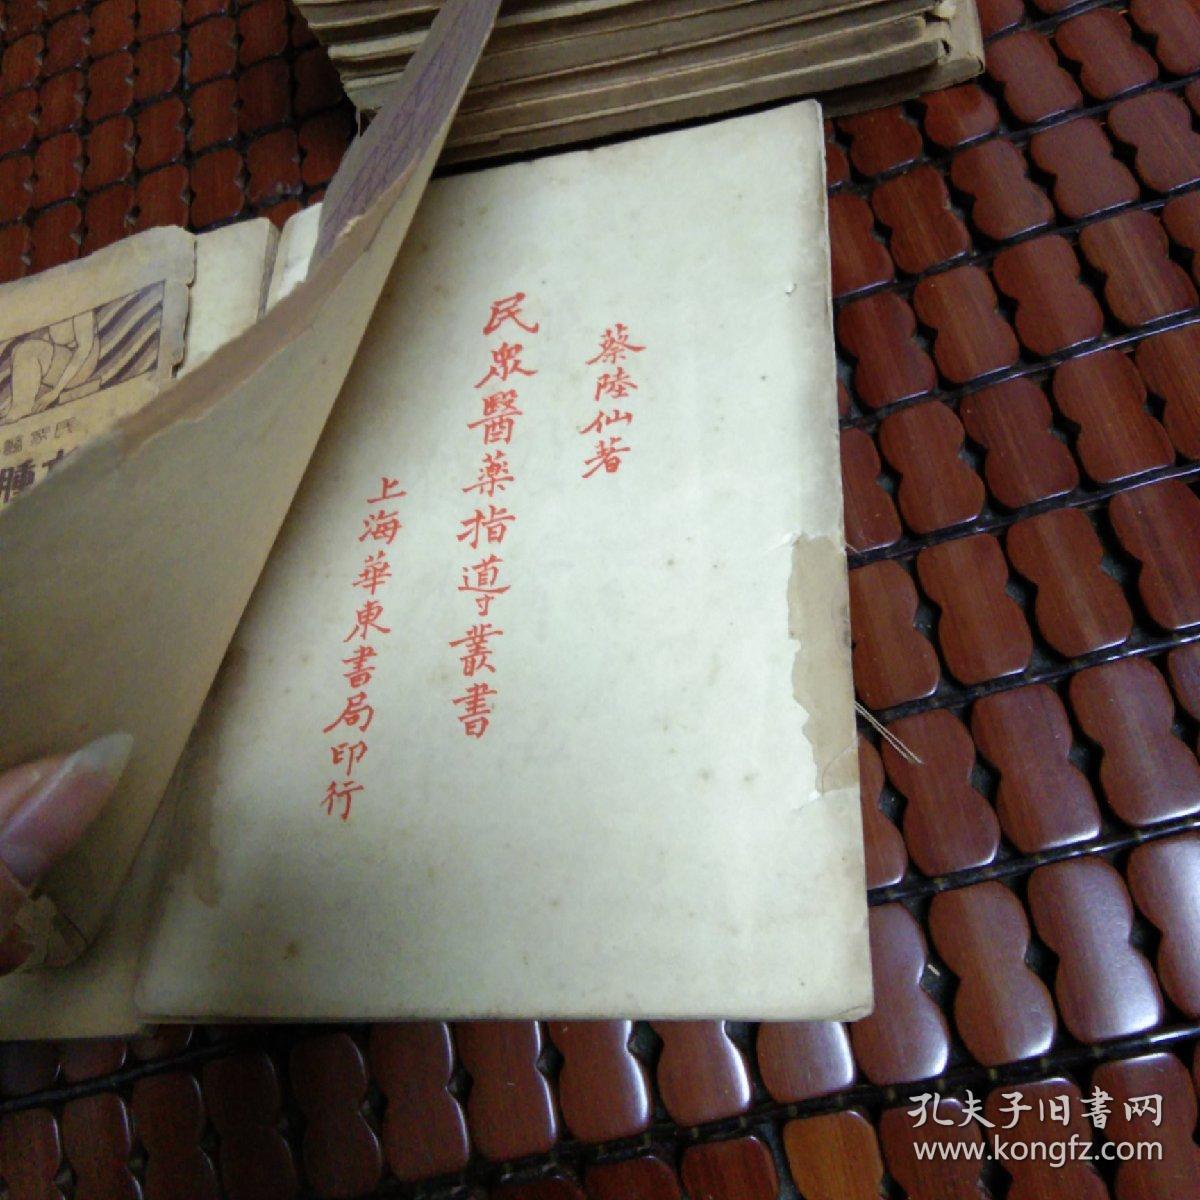 蔡陸仙著
民眾醫藥指導叢書
上海華東書局印行
民眾醫
腫
孔夫子旧書网
www.kongfz.com